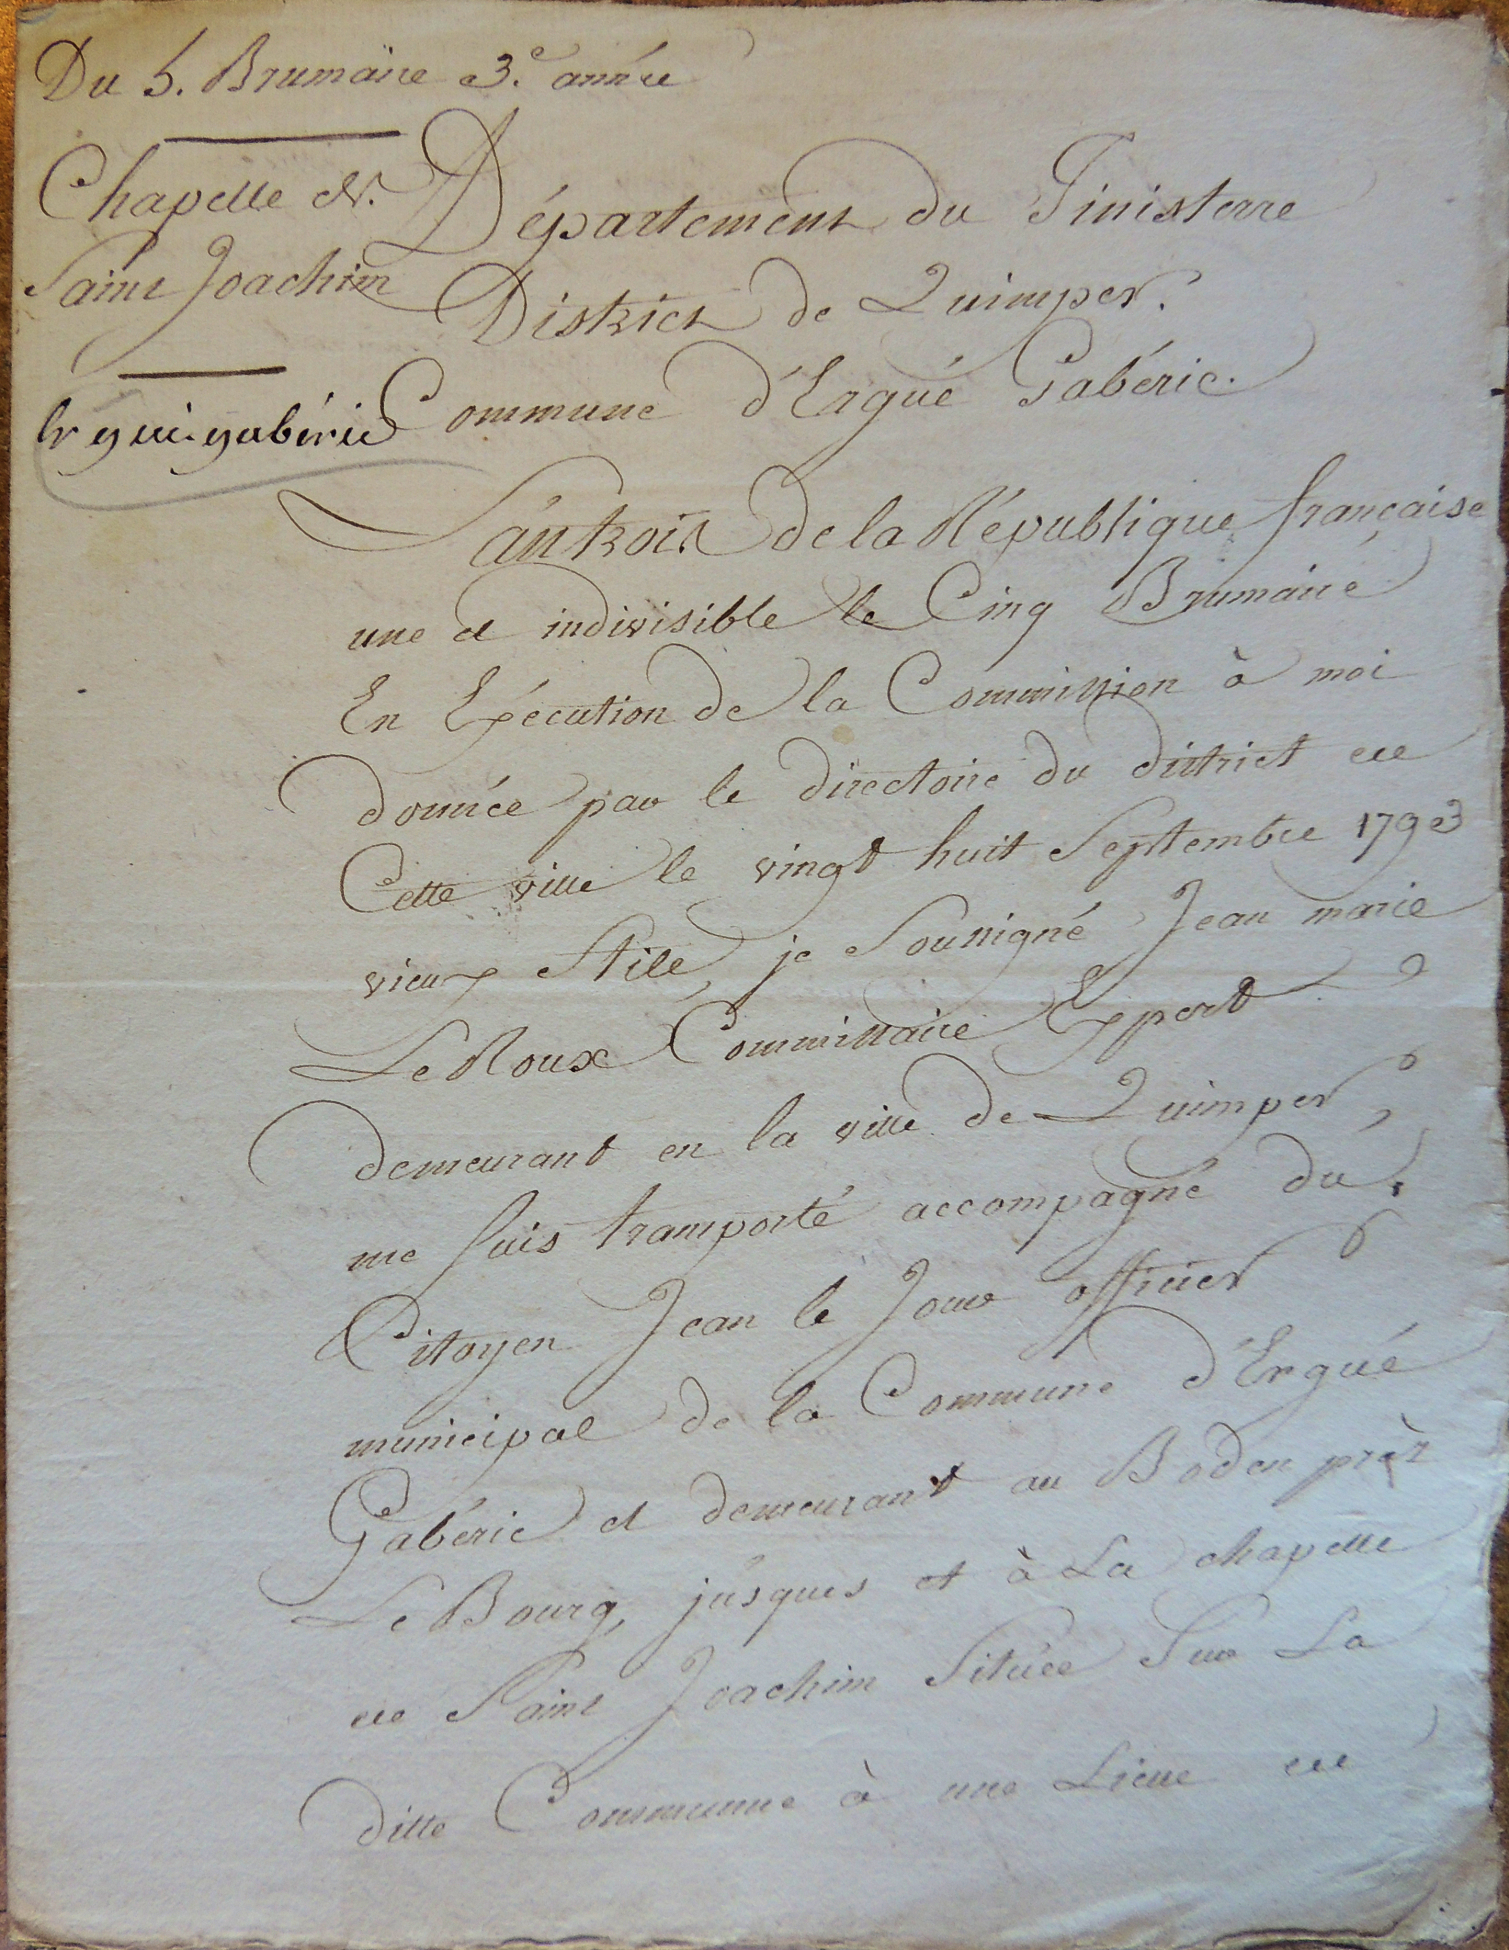 Du 5. Brumaire 3.e année
Chapelle N.
Saint Joachim
Ergué-gabéric
Département du Finisterre
District de Quimper.
Commune d'Ergué Gabéric.
L'an trois de la République française
une et indivisible le Cinq Brumaire
En Exécution de la Commission à moi
donnée par le directoire du district de
Cette ville le vingt huit Septembre 1793
vieux Stile, je Soussigné Jean marie
Le Roux Commissaire Expert
demeurant en la ville de Quimper,
me suis transporté accompagné du
Citoyen Jean le Jour officier
municipal de la Commune d'Ergué
Gabéric et demeurant au Boden près
Le Bourg, jusques et à La chapelle
de Saint Joachim Située Sur La
ditte Commune à une Lieue de